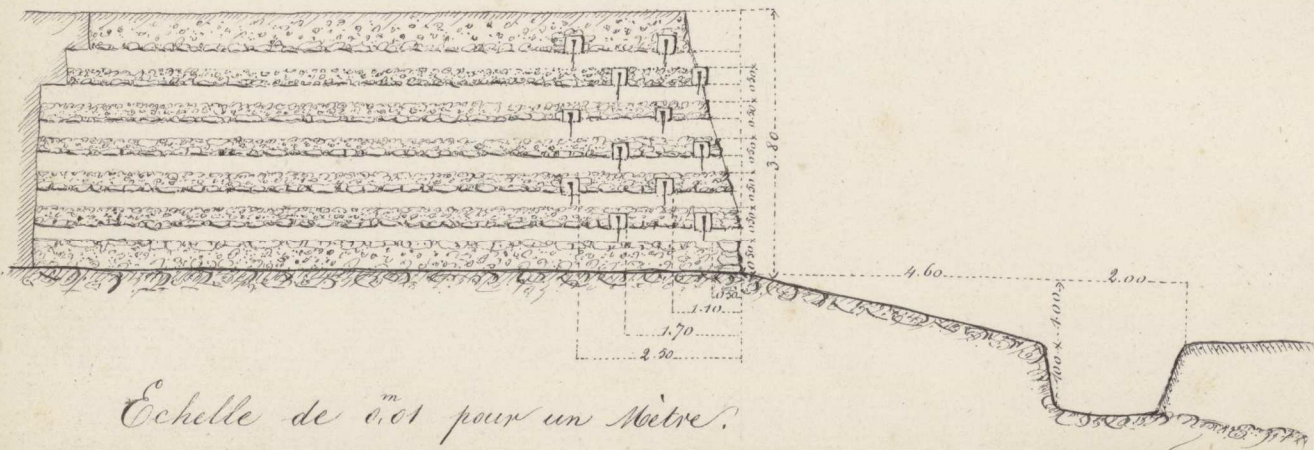 3.80
0.50 × 0.50 × 0.50 × 0.50 × 0.50 × 0.50
4.60
2.00
1.00 × 1.00
0.50
1.10
1.70
2.50
Échelle de 0,ᵐ01 pour un Mètre.